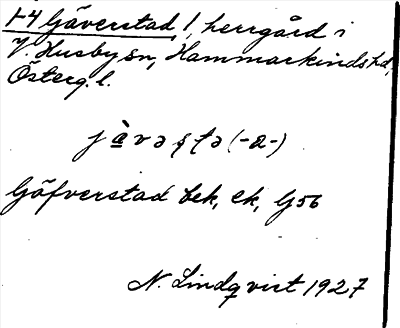 1-4 Gäverstad, 1, herrgård i
V. Husby sn, Hammarkinds hd,
Österg. l.
jàvəʂtə (-a-)
Gäfverstad bek, Ek, G56
N. Lindqvist 1927